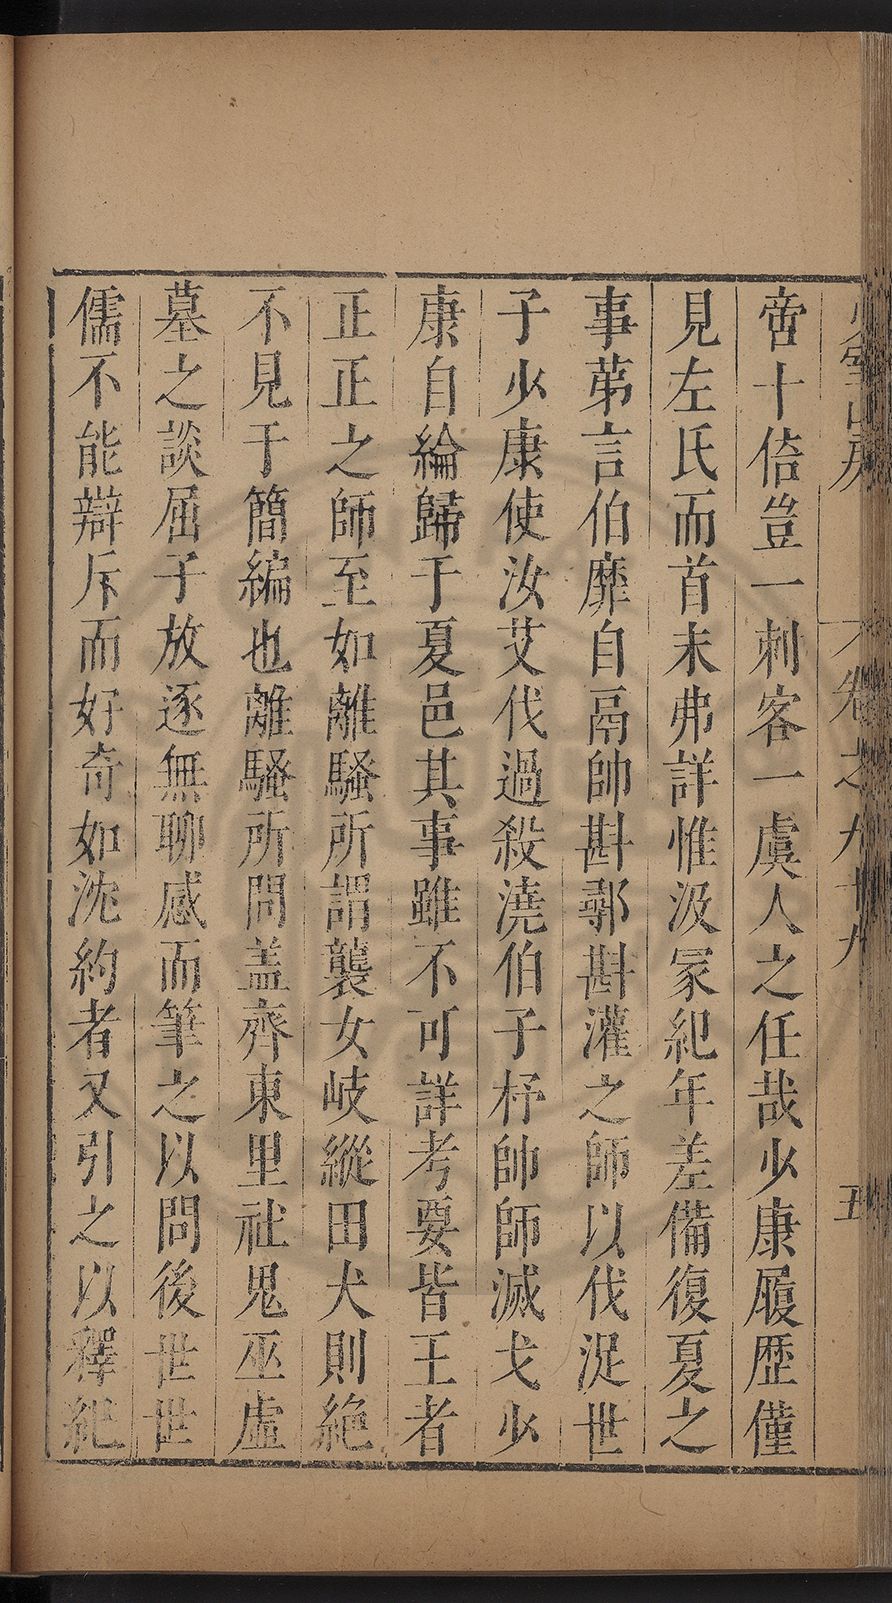 少室山房 卷之九十九 五
啻十倍豈一刺客一虞人之任哉少康履歷僅
見左氏而首末弗詳惟汲冢紀年差備復夏之
事苐言伯靡自鬲帥斟鄩斟灌之師以伐浞世
子少康使汝艾伐過殺澆伯子杼帥師滅戈少
康自綸歸于夏邑其事雖不可詳考要皆王者
正正之師至如離騷所謂襲女岐縱田犬則絶
不見于簡編也離騷所問盖齊東里社鬼巫虛
墓之談屈子放逐無聊感而筆之以問後世世
儒不能辯斥而好奇如沈約者又引之以釋紀